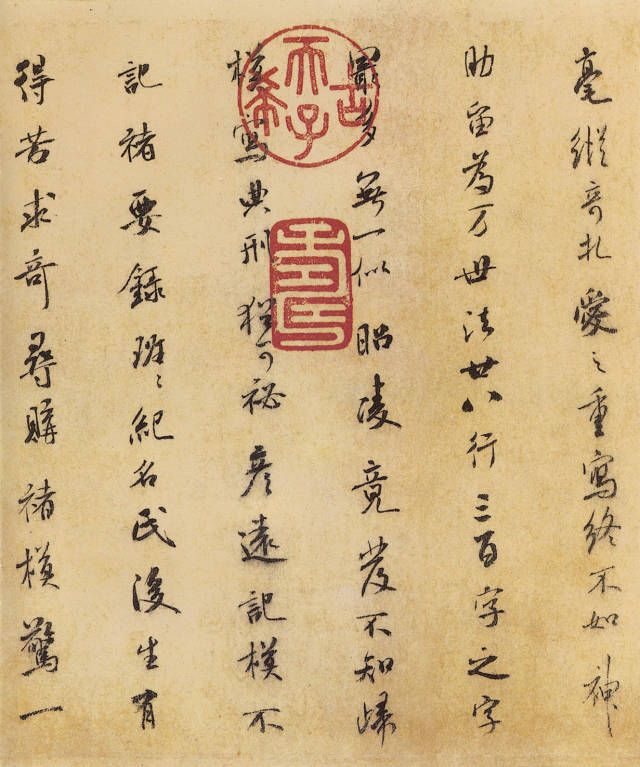 毫縱奇札愛之重寫終不如神
助留為万世法廿八行三百字之字
最多無一似昭陵竟發不知歸
模寫典刑猶可秘彥遠記模不
記褚要錄班〻紀名氏後生有
得苦求奇尋購褚模驚一
古希天子
壽